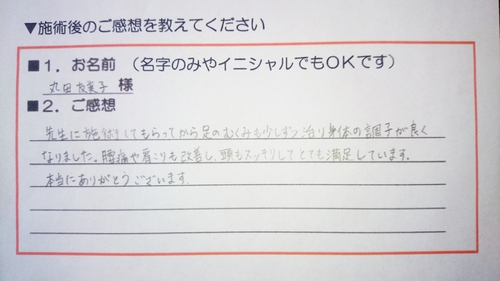 ▼施術後のご感想を教えてください
■1．お名前 （名字のみやイニシャルでもOKです）
丸田友美子 様
■2．ご感想
先生に施術してもらってから足のむくみも少しずつ治り身体の調子が良く
なりました。腰痛や肩こりも改善し、頭もスッキリしてとても満足しています。
本当にありがとうございます。